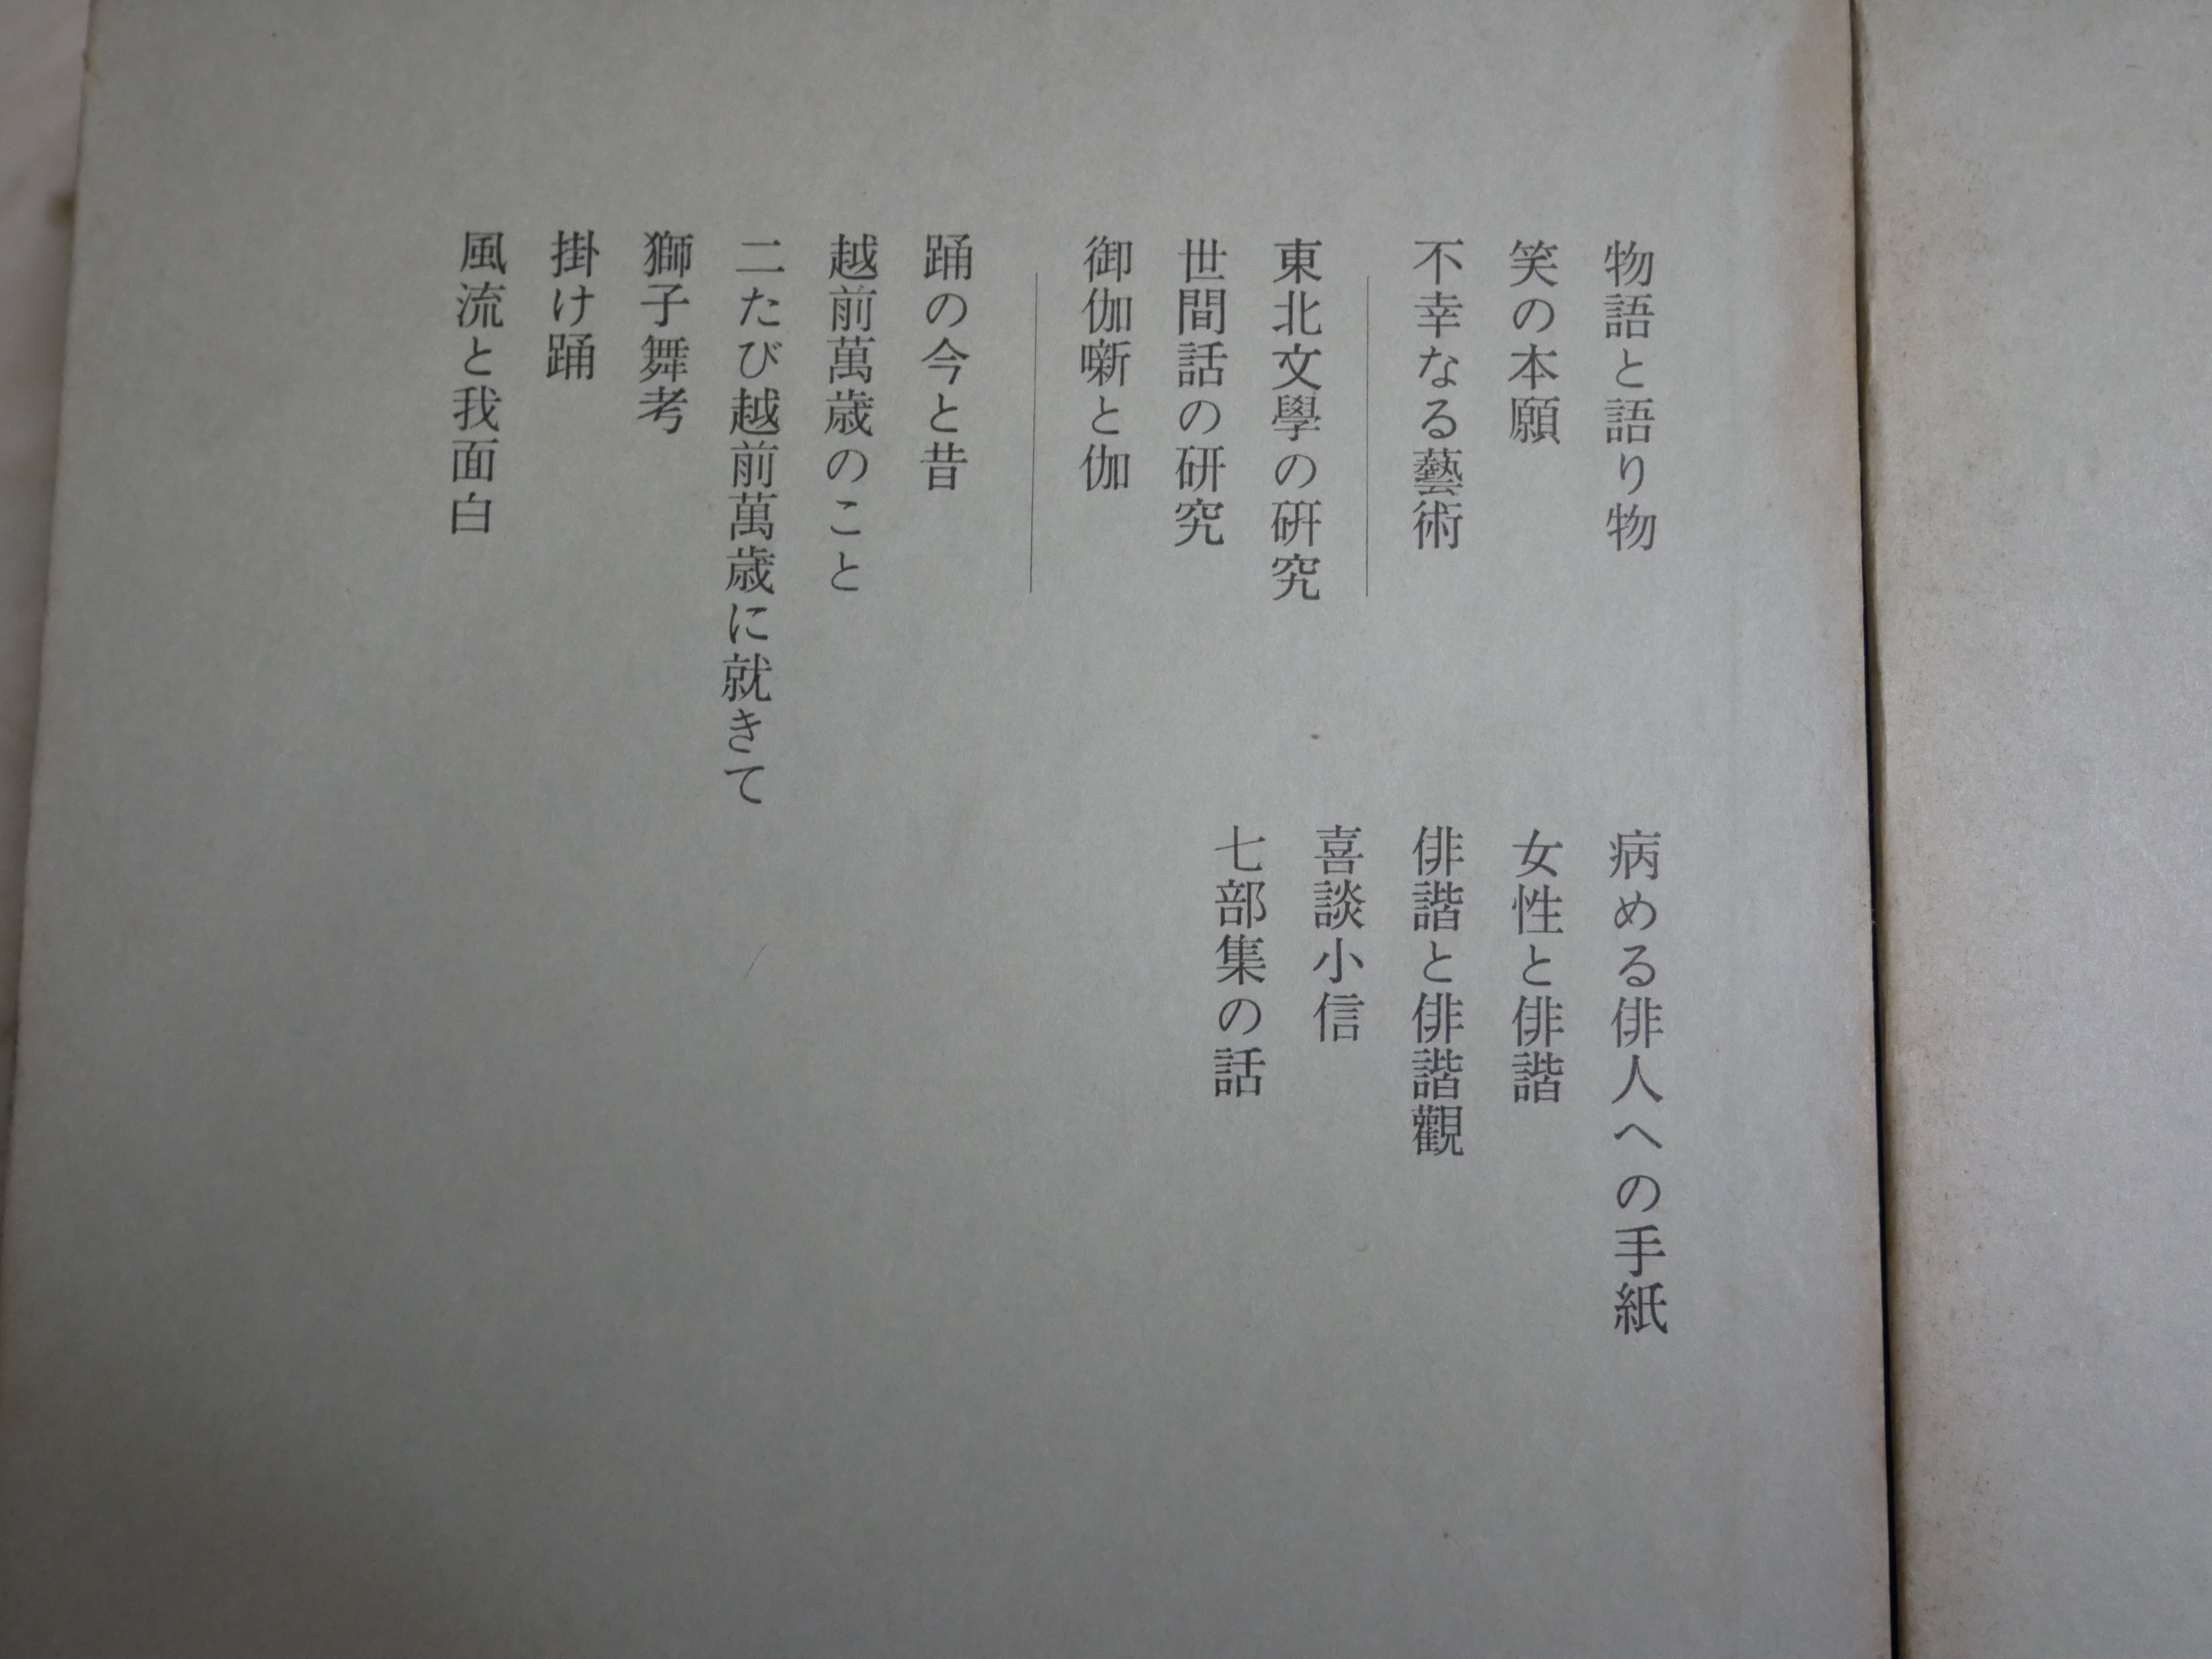 物語と語り物
笑の本願
不幸なる藝術
東北文學の硏究
世間話の研究
御伽噺と伽
踊の今と昔
越前萬歳のこと
二たび越前萬歳に就きて
獅子舞考
掛け踊
風流と我面白
病める俳人への手紙
女性と俳諧
俳諧と俳諧觀
喜談小信
七部集の話